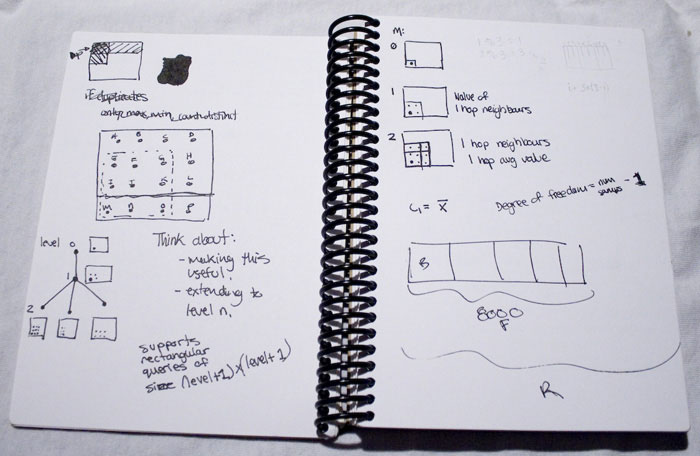 dup
if duplicates
count distinct
A B C D
E F G H
I J K L
M N O P
level 0
1
2
Think about:
- making this
useful.
- extending to
level n.
supports
rectangular
queries of
size (level+1) x (level+1)
M:
0
1
Value of
1 hop neighbours
2
1 hop neighbours
1 hop avg value
C₁ = x̄
Degree of freedom = num
samps - 1
B
8000
F
R